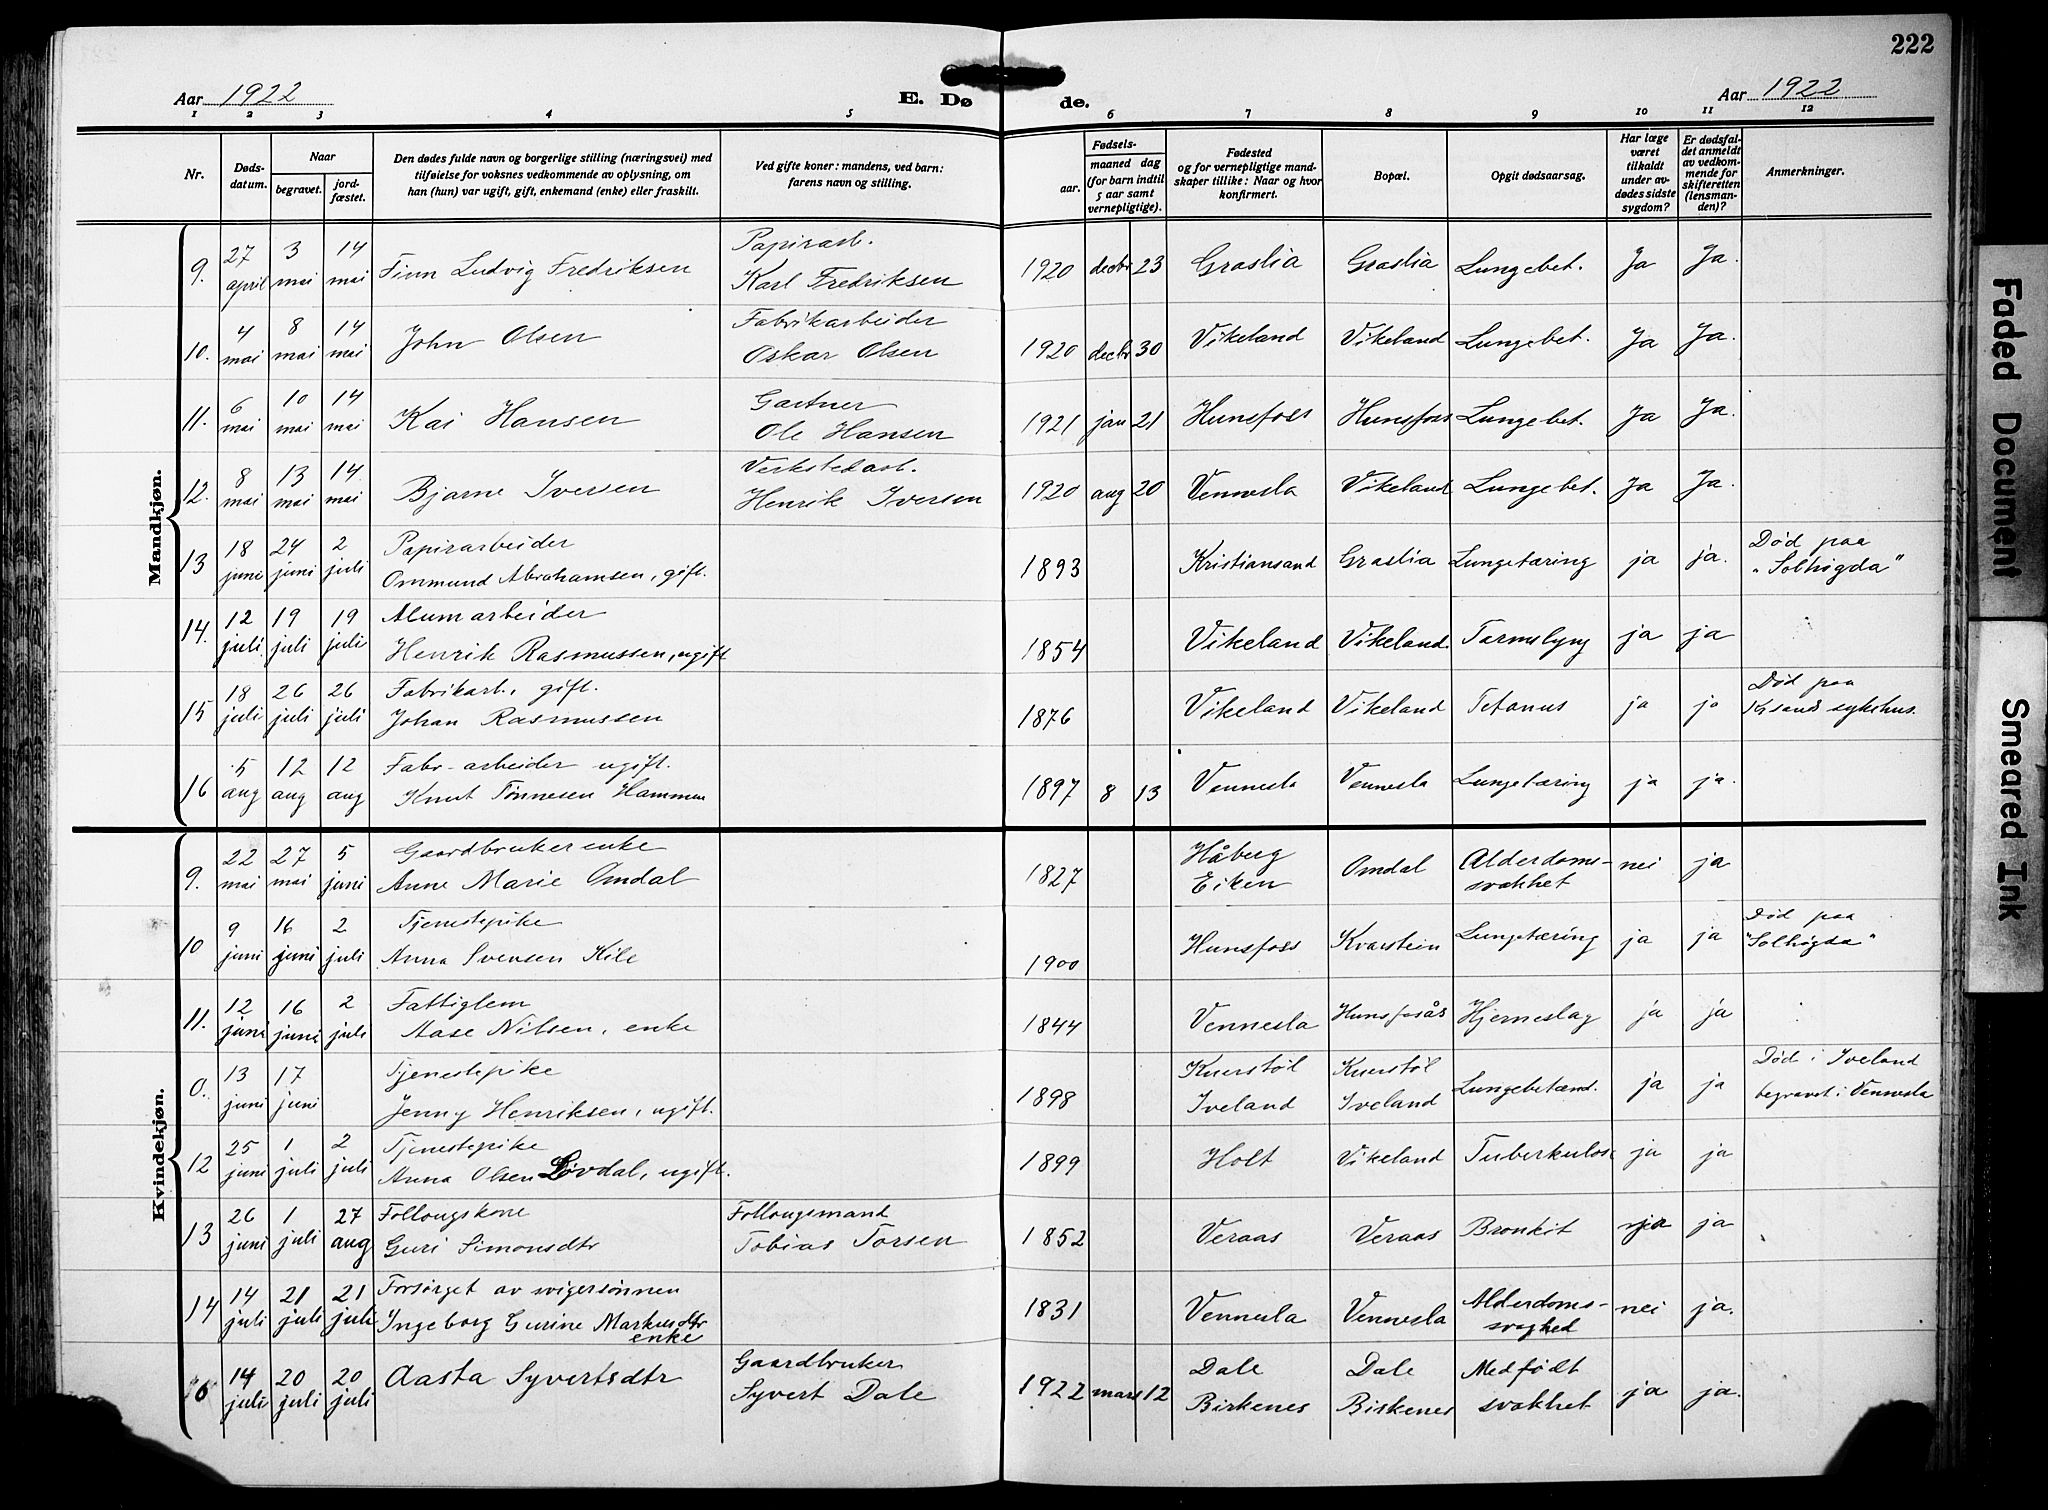 222
Aar 1922
E. Dø
de.
Aar 1922
1 2 3 4 5 6 7 8 9 10 11 12
Nr.
Døds-
datum.
Naar
begravet.
jord-
fæstet.
Den dødes fulde navn og borgerlige stilling (næringsvei) med
tilføielse for voksnes vedkommende av oplysning, om
han (hun) var ugift, gift, enkemand (enke) eller fraskilt.
Ved gifte koner: mandens, ved barn:
farens navn og stilling.
Fødsels-
aar.
maaned dag
(for barn indtil
5 aar samt
vernepligtige).
Fødested
og for vernepligtige mand-
skaper tillike: Naar og hvor
konfirmert.
Bopæl.
Opgit dødsaarsag.
Har læge
været
tilkaldt
under av-
dødes sidste
sygdom?
Er dødsfal-
det anmeldt
av vedkom-
mende for
skifteretten
(lensman-
den)?
Anmerkninger.
Mandkjøn.
9. 27 april 3 mai 14 mai Finn Ludvig Fredriksen Papirarb. Karl Fredriksen 1920 decbr 23 Graslia Graslia Lungebet. Ja Ja.
10. 4 mai 8 mai 14 mai John Olsen Fabrikarbeider Oskar Olsen 1920 decbr 30 Vikeland Vikeland Lungebet. Ja Ja.
11. 6 mai 10 mai 14 mai Kai Hansen Gartner Ole Hansen 1921 jan 21 Hunsfoss Hunsfoss Lungebet. Ja Ja.
12. 8 mai 13 mai 14 mai Bjarne Iversen Verkstedarb. Henrik Iversen 1920 aug 20 Vennesla Vikeland Lungebet. Ja Ja.
13 18 juni 24 juni 2 juli Papirarbeider Ommund Abrahamsen, gift. 1893 Kristiansand Graslia Lungetæring ja ja. Død paa "Solhøgda"
14. 12 juli 19 juli 19 juli Alumarbeider Henrik Rasmussen, ugift 1854 Vikeland Vikeland. Tarmslyng ja ja
15 18 juli 26 juli 26 juli Fabrikarb., gift. Johan Rasmussen 1876 Vikeland Vikeland Tetanus ja ja Død paa Krsands sykehus.
16 5 aug 12 aug 12 aug Fabr-arbeider ugift. Knut Tønnesen Hammen 1897 8 13 Vennesla Vennesla Lungetæring ja ja.
Kvindekjøn.
9. 22 mai 27 mai 5 juni Gaardbrukerenke Anne Marie Omdal 1827 Håberg Eiken Omdal Alderdoms-svakhet nei ja
10 9 juni 16 juni 2 juli Tjenestepike Anna Svensen Kile 1900 Hunsfoss Kvarstein Lungetæring ja ja Død paa "Solhøgda"
11. 12 juni 16 juni 2 juli Fattiglem Aase Nilsen, enke 1844 Vennesla Hunsfosås Hjerneslag ja ja
0. 13 juni 17 juni Tjenestepike Jenny Henriksen, ugift. 1898 Kuerstøl Iveland Kuerstøl Iveland Lungebetænd. ja ja Død i Iveland begravet i Vennesla
12 25 juni 1 juli 2 juli Tjenestepike Anna Olsen Løvdal, ugift. 1899 Holt Vikeland Tuberkulose ja ja
13 26 juni 1 juli 27 aug Follougskone Guri Simonsdtr Follougsmand Tobias Torsen 1852 Veraas Veraas Bronkit ja ja
14 14 juli 21 juli 21 juli Forsørget av svigersønnen Ingeborg Gurine Markusdtr enke 1831 Vennesla Vennesla Alderdoms-svaghed nei ja.
14 juli 20 juli 20 juli Aasta Syvertsdtr Gaardbruker Syvert Dale 1922 mars 12 Dale Birkenes Dale Birkenes Medfødt svakhet ja ja.
Faded Document
Smeared Ink